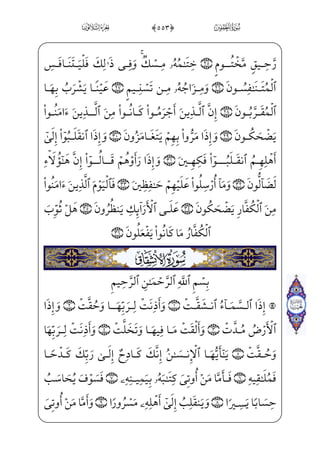 سُورَةُ المُطَفِّفِينَ ﴿٥٥٣﴾ الجُزْءُ الثَّلَاثُونَ
رَّحِيقٍ مَّخْتُومٍ ﴿٢٥﴾ خِتَٰمُهُۥ مِسْكٌ ۚ وَفِى ذَٰلِكَ فَلْيَتَنَافَسِ
ٱلْمُتَنَٰفِسُونَ ﴿٢٦﴾ وَمِزَاجُهُۥ مِن تَسْنِيمٍ ﴿٢٧﴾ عَيْنًا يَشْرَبُ بِهَا
ٱلْمُقَرَّبُونَ ﴿٢٨﴾ إِنَّ ٱلَّذِينَ أَجْرَمُوا۟ كَانُوا۟ مِنَ ٱلَّذِينَ ءَامَنُوا۟
يَضْحَكُونَ ﴿٢٩﴾ وَإِذَا مَرُّوا۟ بِهِمْ يَتَغَامَزُونَ ﴿٣٠﴾ وَإِذَا ٱنقَلَبُوٓا۟ إِلَىٰٓ
أَهْلِهِمُ ٱنقَلَبُوا۟ فَكِهِينَ ﴿٣١﴾ وَإِذَا رَأَوْهُمْ قَالُوٓا۟ إِنَّ هَٰٓؤُلَآءِ
لَضَآلُّونَ ﴿٣٢﴾ وَمَآ أُرْسِلُوا۟ عَلَيْهِمْ حَٰفِظِينَ ﴿٣٣﴾ فَٱلْيَوْمَ ٱلَّذِينَ ءَامَنُوا۟
مِنَ ٱلْكُفَّارِ يَضْحَكُونَ ﴿٣٤﴾ عَلَى ٱلْأَرَآئِكِ يَنظُرُونَ ﴿٣٥﴾ هَلْ ثُوِّبَ
ٱلْكُفَّارُ مَا كَانُوا۟ يَفْعَلُونَ ﴿٣٦﴾
سُورَةُ الانشِقَاقِ
بِسْمِ ٱللَّهِ ٱلرَّحْمَٰنِ ٱلرَّحِيمِ
إِذَا ٱلسَّمَآءُ ٱنشَقَّتْ ﴿١﴾ وَأَذِنَتْ لِرَبِّهَا وَحُقَّتْ ﴿٢﴾ وَإِذَا
ٱلْأَرْضُ مُدَّتْ ﴿٣﴾ وَأَلْقَتْ مَا فِيهَا وَتَخَلَّتْ ﴿٤﴾ وَأَذِنَتْ لِرَبِّهَا
وَحُقَّتْ ﴿٥﴾ يَٰٓأَيُّهَا ٱلْإِنسَٰنُ إِنَّكَ كَادِحٌ إِلَىٰ رَبِّكَ كَدْحًا
فَمُلَٰقِيهِ ﴿٦﴾ فَأَمَّا مَنْ أُوتِىَ كِتَٰبَهُۥ بِيَمِينِهِۦ ﴿٧﴾ فَسَوْفَ يُحَاسَبُ
حِسَابًا يَسِيرًا ﴿٨﴾ وَيَنقَلِبُ إِلَىٰٓ أَهْلِهِۦ مَسْرُورًا ﴿٩﴾ وَأَمَّا مَنْ أُوتِىَ